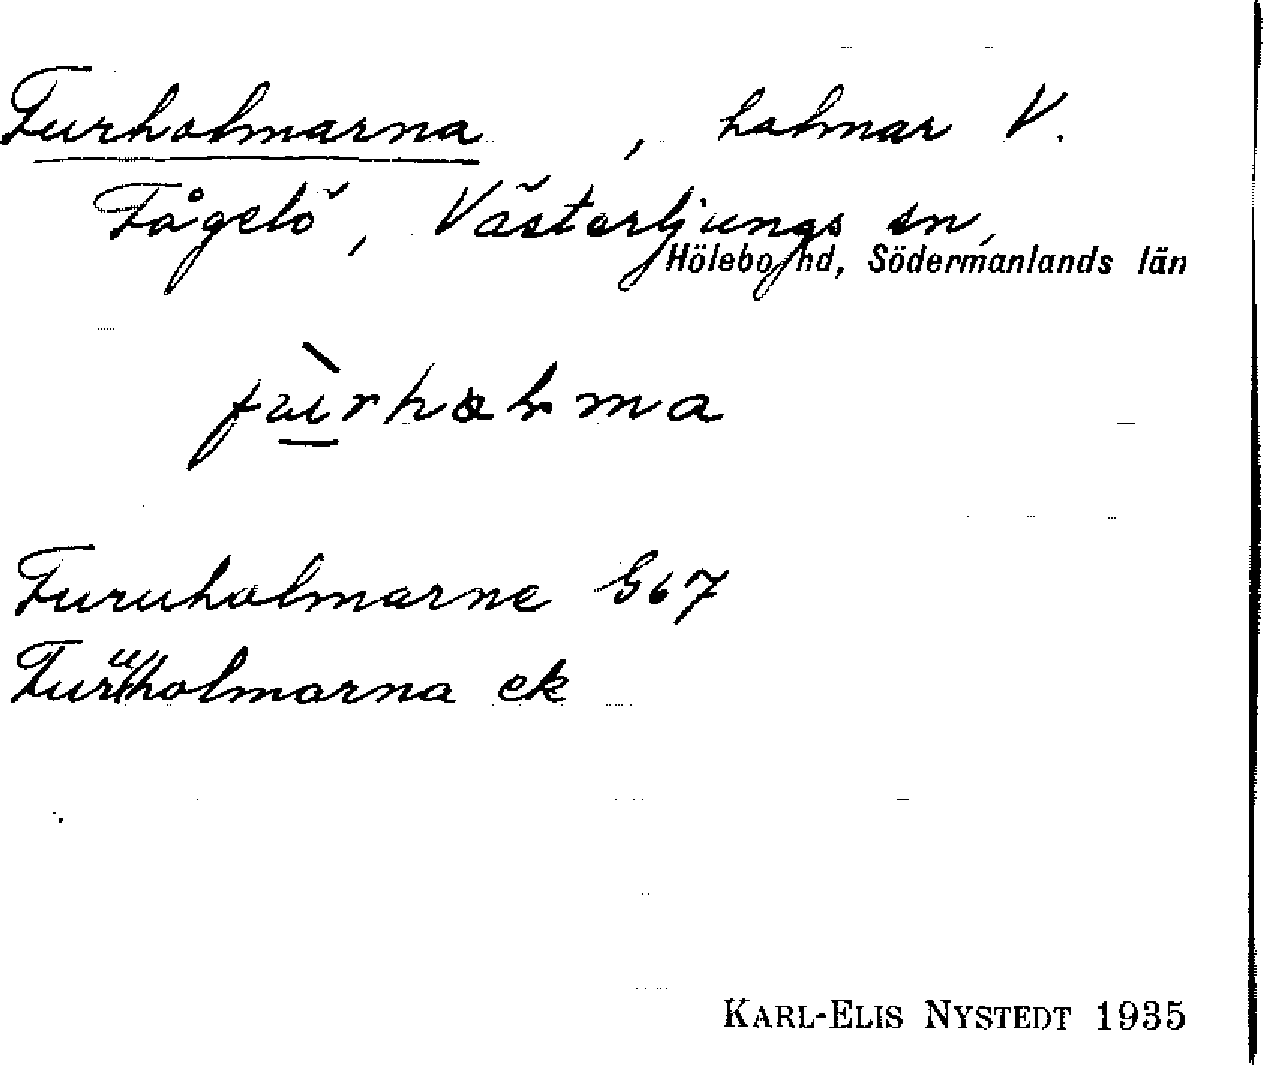 Furholmarna, holmar V.
Fågelö, Västerljungs sn,
Hölebo hd, Södermanlands län
fùrholma
Furuholmarne G67
Furuholmarna ek
KARL-ELIS NYSTEDT 1935